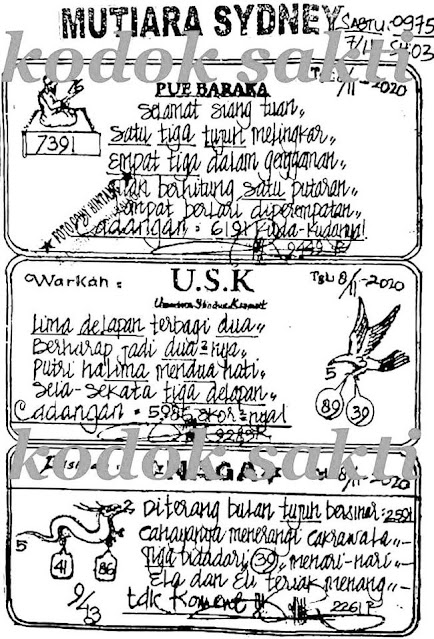 MUTIARA SYDNEY
SABTU : 0975
7/11 SH:03
kodok sakti
PUE BARAKA
/11 - 2020
7391
Selamat siang tuan „
Satu tiga tujuh melingkar
Empat tiga dalam genggaman „
berhitung satu putaran
berlari diperempatan
Cadangan : 6191 Kuda-Kudanya!
9449 R
Warkah :
U.S.K
TGL 8/11-2020
Lima delapan terbagi dua „
Berharap jadi dua²nya „
Putri halima mendua hati
Sela-sekata tiga delapan „
Cadangan : 5985 ekor²nya!
9249 R
5
89 39
kodok sakti
NAGA
8/11-2020
2
5
41 86
9/43
Diterang bulan tujuh bersinar : 2591
Cahayanya menerangi cakrawala „
Tiga bidadari 39 menari-nari
Ela dan Eli teriak menang „
tdk Koment !!
2261 R